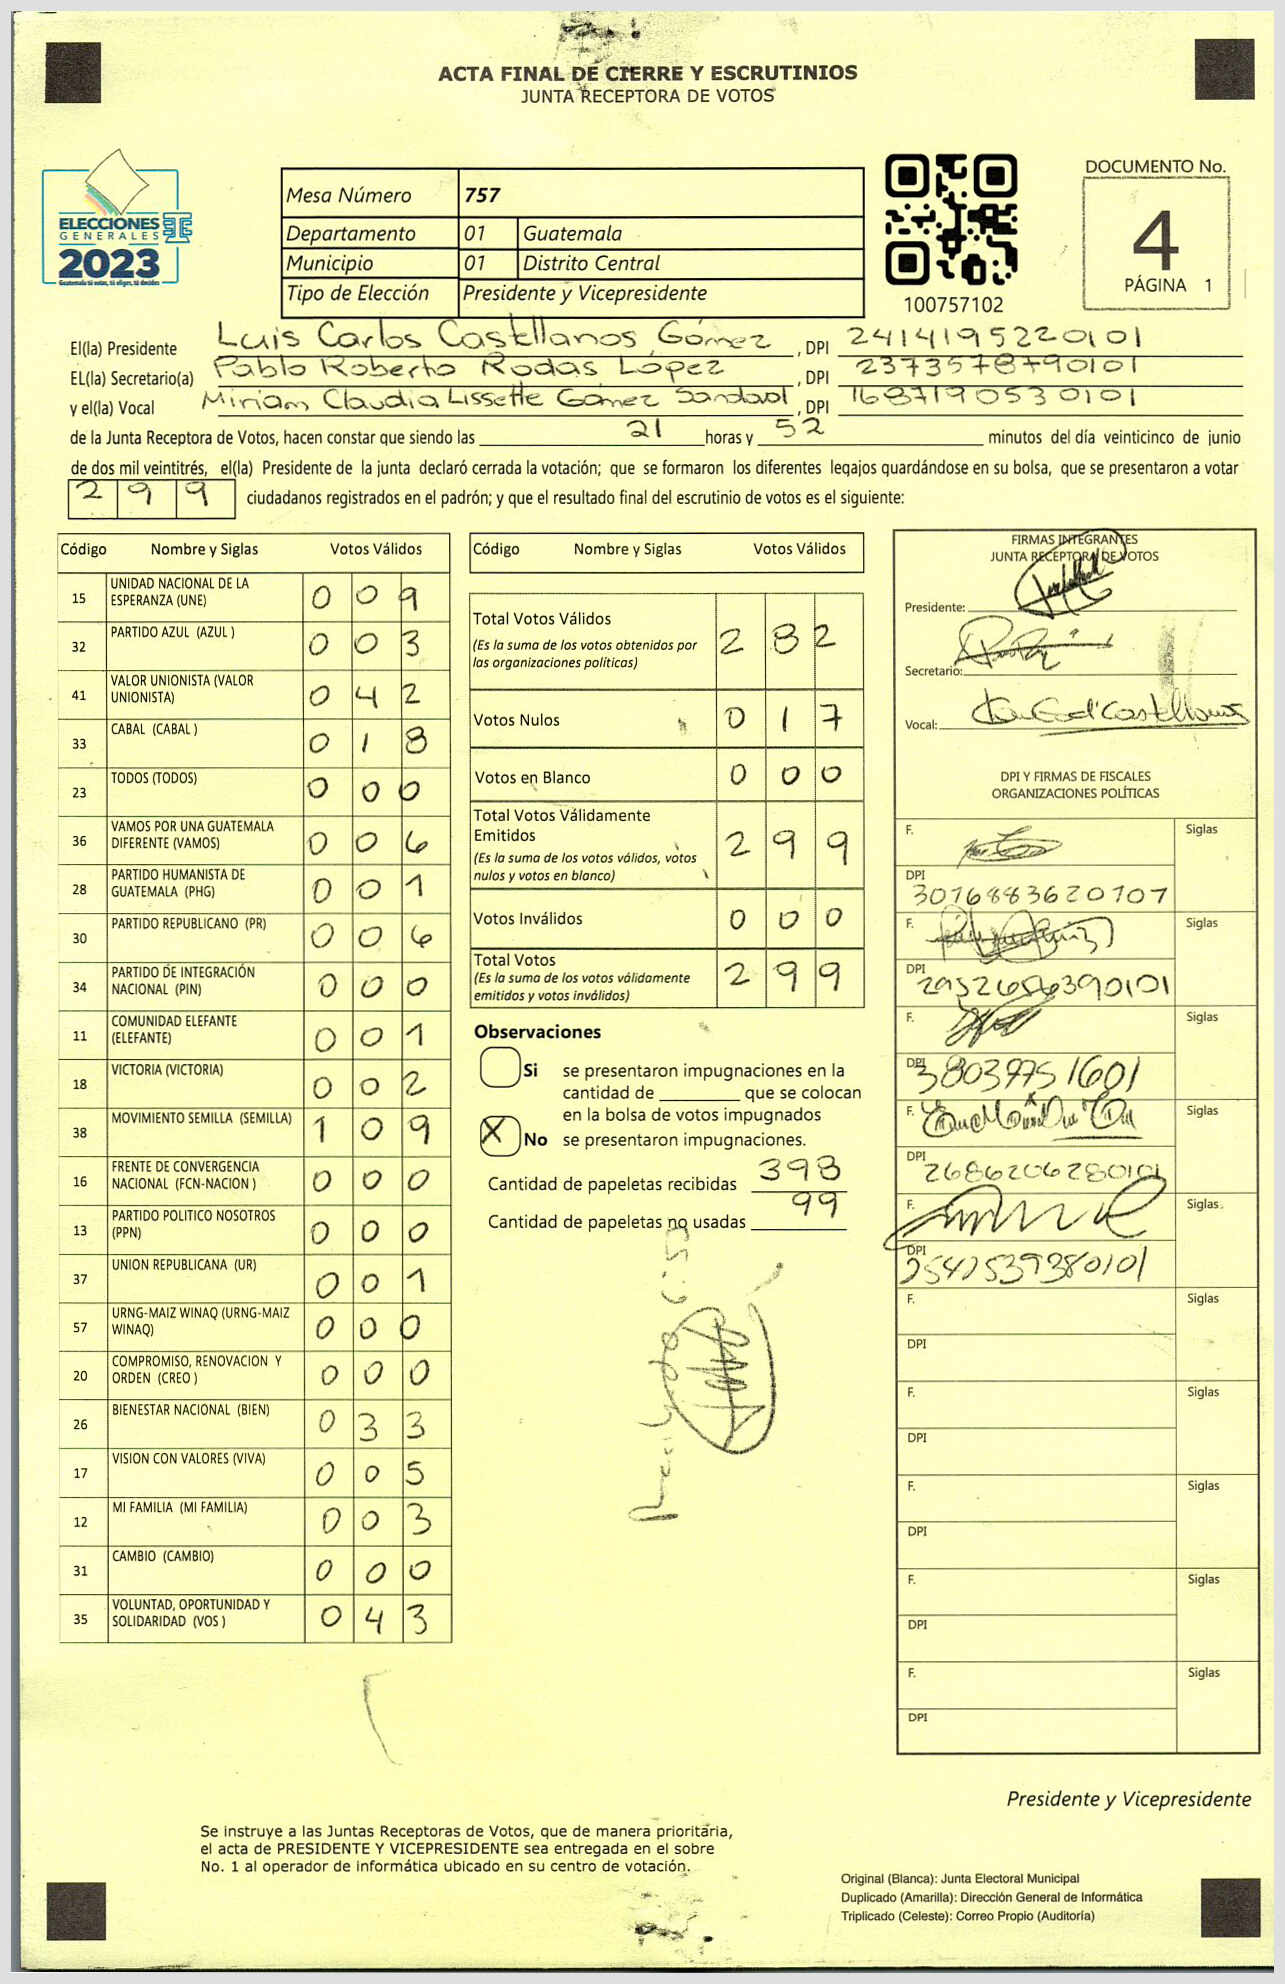 ACTA FINAL DE CIERRE Y ESCRUTINIOS
JUNTA RECEPTORA DE VOTOS
ELECCIONES
GENERALES
2023
Guatemala tú votas, tú eliges, tú decides
Mesa Número 757
Departamento 01 Guatemala
Municipio 01 Distrito Central
Tipo de Elección Presidente y Vicepresidente
100757102
DOCUMENTO No.
4
PÁGINA 1
El(la) Presidente Luis Carlos Castellanos Gómez, DPI 2414195220101
EL(la) Secretario(a) Pablo Roberto Rodas López, DPI 2373578790101
y el(la) Vocal Miriam Claudia Lissette Gómez Sandoval, DPI 1687190530101
de la Junta Receptora de Votos, hacen constar que siendo las 21 horas y 52 minutos del día veinticinco de junio
de dos mil veintitrés, el(la) Presidente de la junta declaró cerrada la votación; que se formaron los diferentes legajos guardándose en su bolsa, que se presentaron a votar
299 ciudadanos registrados en el padrón; y que el resultado final del escrutinio de votos es el siguiente:
Código Nombre y Siglas Votos Válidos
15 UNIDAD NACIONAL DE LA ESPERANZA (UNE) 009
32 PARTIDO AZUL (AZUL ) 003
41 VALOR UNIONISTA (VALOR UNIONISTA) 042
33 CABAL (CABAL ) 018
23 TODOS (TODOS) 000
36 VAMOS POR UNA GUATEMALA DIFERENTE (VAMOS) 006
28 PARTIDO HUMANISTA DE GUATEMALA (PHG) 001
30 PARTIDO REPUBLICANO (PR) 006
34 PARTIDO DE INTEGRACIÓN NACIONAL (PIN) 000
11 COMUNIDAD ELEFANTE (ELEFANTE) 001
18 VICTORIA (VICTORIA) 002
38 MOVIMIENTO SEMILLA (SEMILLA) 109
16 FRENTE DE CONVERGENCIA NACIONAL (FCN-NACION ) 000
13 PARTIDO POLITICO NOSOTROS (PPN) 000
37 UNION REPUBLICANA (UR) 001
57 URNG-MAIZ WINAQ (URNG-MAIZ WINAQ) 000
20 COMPROMISO, RENOVACION Y ORDEN (CREO ) 000
26 BIENESTAR NACIONAL (BIEN) 033
17 VISION CON VALORES (VIVA) 005
12 MI FAMILIA (MI FAMILIA) 003
31 CAMBIO (CAMBIO) 000
35 VOLUNTAD, OPORTUNIDAD Y SOLIDARIDAD (VOS ) 043
Código Nombre y Siglas Votos Válidos
Total Votos Válidos 282
(Es la suma de los votos obtenidos por
las organizaciones políticas)
Votos Nulos 017
Votos en Blanco 000
Total Votos Válidamente
Emitidos 299
(Es la suma de los votos válidos, votos
nulos y votos en blanco)
Votos Inválidos 000
Total Votos 299
(Es la suma de los votos válidamente
emitidos y votos inválidos)
Observaciones
Si se presentaron impugnaciones en la
cantidad de ________ que se colocan
en la bolsa de votos impugnados
X No se presentaron impugnaciones.
Cantidad de papeletas recibidas 398
Cantidad de papeletas no usadas 99
FIRMAS INTEGRANTES
JUNTA RECEPTORA DE VOTOS
Presidente:
Secretario:
Vocal:
DPI Y FIRMAS DE FISCALES
ORGANIZACIONES POLÍTICAS
F. Siglas
DPI 3076883620707
F. Siglas
DPI 2952686390101
F. Siglas
DPI
F. Siglas
DPI 2686206280101
F. Siglas
DPI 2541539380101
F. Siglas
DPI
F. Siglas
DPI
F. Siglas
DPI
F. Siglas
DPI
F. Siglas
DPI
Presidente y Vicepresidente
Se instruye a las Juntas Receptoras de Votos, que de manera prioritaria,
el acta de PRESIDENTE Y VICEPRESIDENTE sea entregada en el sobre
No. 1 al operador de informática ubicado en su centro de votación.
Original (Blanca): Junta Electoral Municipal
Duplicado (Amarilla): Dirección General de Informática
Triplicado (Celeste): Correo Propio (Auditoría)